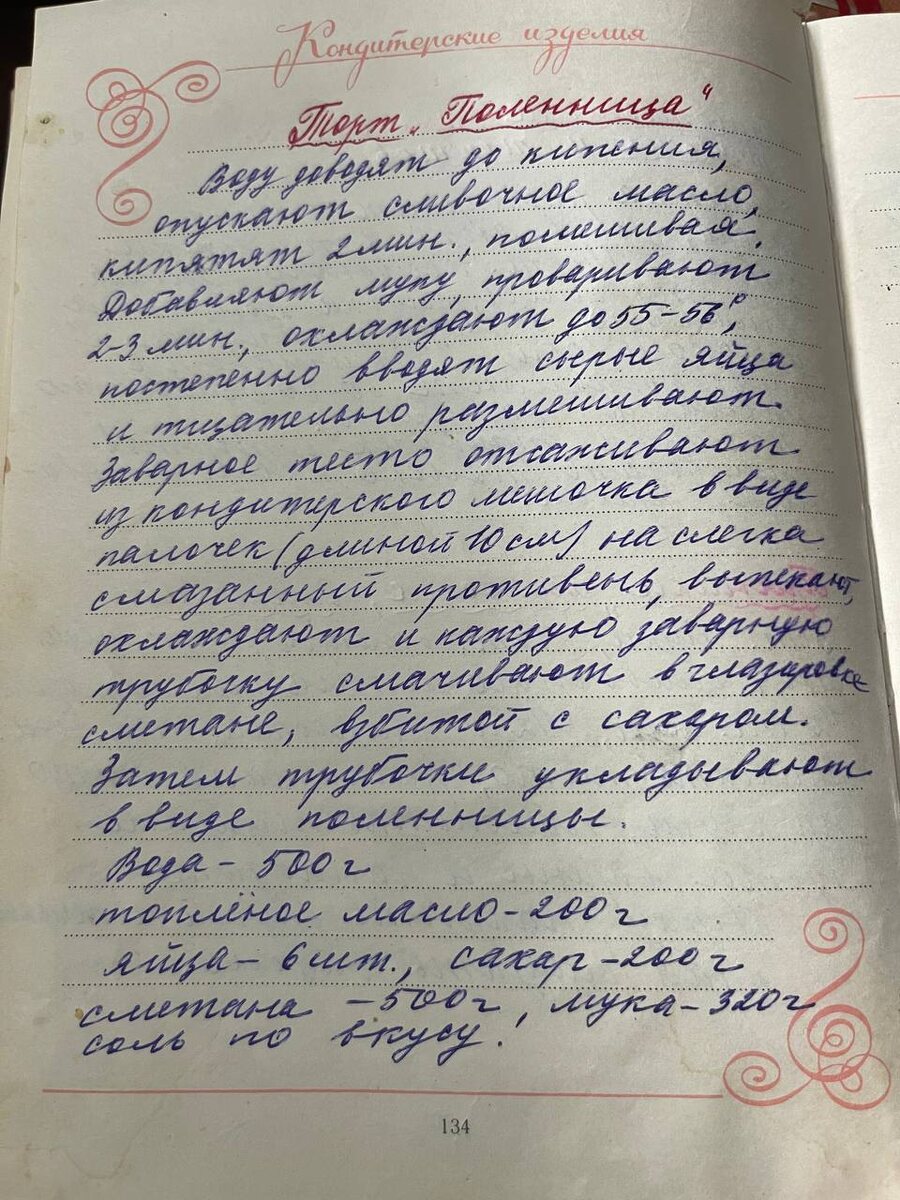 Кондитерские изделия
Торт „Поленница“
Воду доводят до кипения,
опускают сливочное масло,
кипятят 2 мин., помешивая.
Добавляют муку, проваривают
2-3 мин., охлаждают до 55-56°,
постепенно вводят сырые яйца
и тщательно размешивают.
Заварное тесто отсаживают
из кондитерского мешочка в виде
палочек (длиной 10 см) на слегка
смазанный противень, выпекают,
охлаждают и каждую заварную
трубочку смачивают в глазировке
сметане, взбитой с сахаром.
Затем трубочки укладывают
в виде поленницы.
Вода - 500 г
топлёное масло - 200 г
яйца - 6 шт., сахар - 200 г
сметана - 500 г, мука - 320 г
соль по вкусу!
134